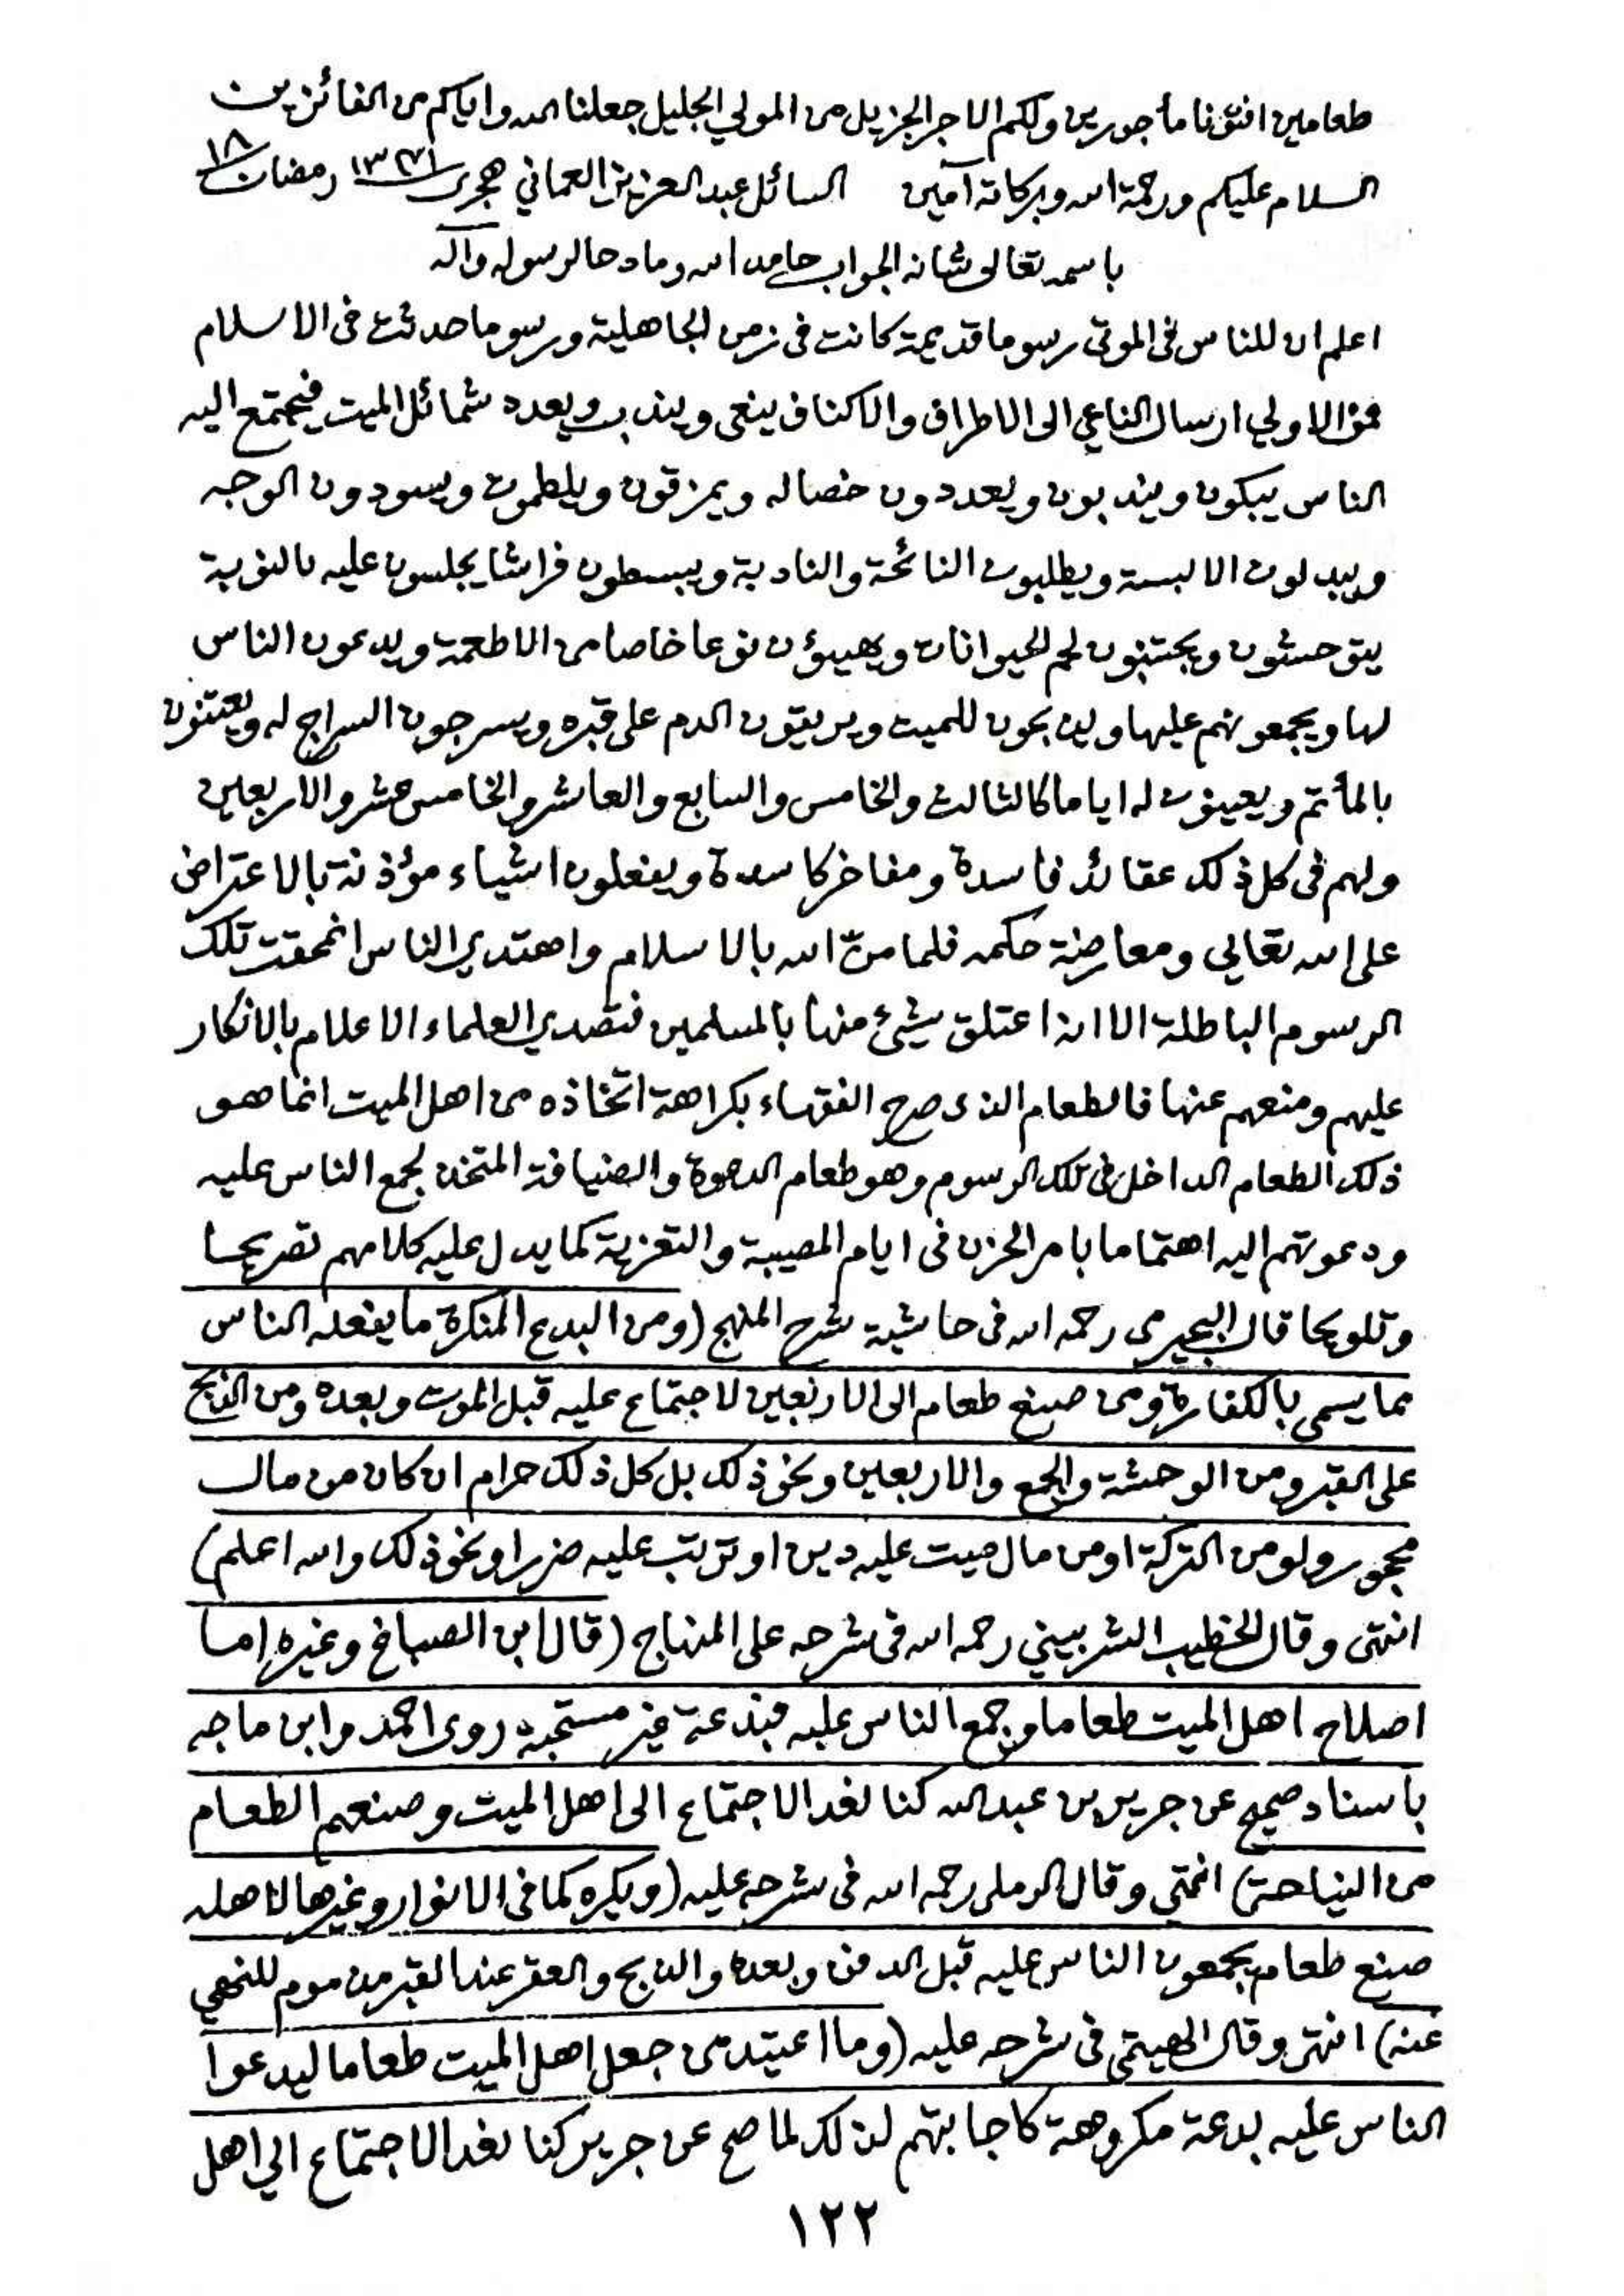 طعامين افتونا مأجورين ولكم الاجر الجزيل من المولي الجليل جعلنا الله واياكم من الفائزين
السلام عليكم ورحمة الله وبركاته آمين السائل عبد العزيز العماني هجرى ١٣٧١ رمضان ١٨
باسمه تعالى شانه الجواب حامدا لله ومادحا لرسوله وآله
اعلم ان للناس فى الموتى رسوما قديمة كانت فى زمن الجاهلية ورسوما حدثت فى الاسلام
فمن الاولي ارسال الناعي الى الاطراف والاكناف ينعى ويندب ويعدد شمائل الميت فيجتمع اليه
الناس يبكون ويندبون ويعددون خصاله ويمزقون ويلطمون ويسودون الوجه
ويبدلون الالبسة ويطلبون النائحة والنادبة ويبسطون فراشا يجلسون عليه بالنوبة
يتوحشون ويجتنبون لحم الحيوانات ويهيؤن نوعا خاصا من الاطعمة ويدعون الناس
لها ويجمعونهم عليها ويذبحون للميت ويريقون الدم على قبره ويسرجون السراج له ويعتنون
بالمأتم ويعينون له اياما كالثالث والخامس والسابع والعاشر والخامس عشر والاربعين
ولهم فى كل ذلك عقائد فاسدة ومفاخر كاسدة ويفعلون اشياء مؤذنة بالاعتراض
على الله تعالي ومعارضة حكمه فلما منّ الله بالاسلام واهتدي الناس انمحقت تلك
الرسوم الباطلة الا انه اعتلق شيئ منها بالمسلمين فتصدي العلماء الاعلام بالانكار
عليهم ومنعهم عنها فالطعام الذى صرح الفقهاء بكراهة اتخاذه من اهل الميت انما هو
ذلك الطعام الداخل فى تلك الرسوم وهو طعام الدعوة والضيافة المتخذ لجمع الناس عليه
ودعوتهم اليه اهتماما بامر الحزن فى ايام المصيبة والتعزية كما يدل عليه كلامهم تصريحا
وتلويحا قال البجيرمى رحمه الله فى حاشية شرح المنهج (ومن البدع المنكرة ما يفعله الناس
مما يسمى بالكفارة ومن صنع طعام الى الاربعين لاجتماع عليه قبل الموت وبعده ومن الذبح
على القبر ومن الوحشة والجمع والاربعين ونحو ذلك بل كل ذلك حرام ان كان من مال
محجور ولو من التركة او من مال ميت عليه دين او ترتب عليه ضرر او نحو ذلك والله اعلم)
انتهى وقال الخطيب الشربيني رحمه الله فى شرحه على المنهاج (قال ابن الصباغ وغيره اما
اصلاح اهل الميت طعاما وجمع الناس عليه فبدعة غير مستحبة روى احمد وابن ماجه
باسناد صحيح عن جرير بن عبد الله كنا نعد الاجتماع الى اهل الميت وصنعهم الطعام
من النياحة) انتهى وقال الرملى رحمه الله فى شرحه عليه (ويكره كما فى الانوار وغيرها لاهله
صنع طعام يجمعون الناس عليه قبل الدفن وبعده والذبح والعقر عند القبر مذموم للنهي
عنه) انتهى وقال الهيتمى فى شرحه عليه (وما اعتيد من جعل اهل الميت طعاما ليدعوا
الناس عليه بدعة مكروهة كاجابتهم لذلك لما صح عن جرير كنا نعد الاجتماع الي اهل
١٢٢